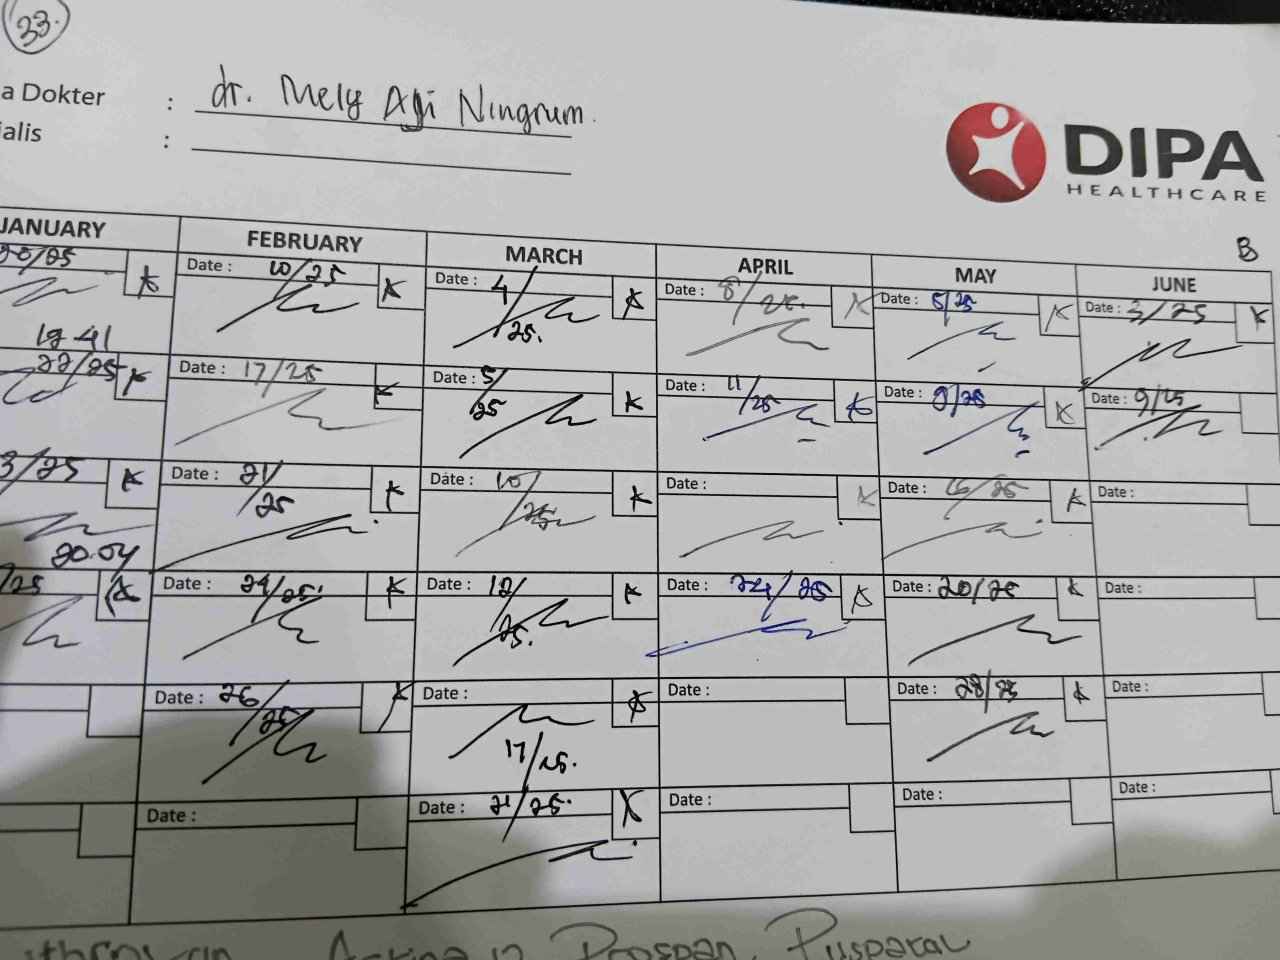 33.
a Dokter : dr. Mely Agi Ningrum.
ialis :
DIPA
HEALTHCARE
B
JANUARY FEBRUARY MARCH APRIL MAY JUNE
20/25 K Date : 10/25 K Date : 4/25. K Date : 8/25. K Date : 5/25 K Date : 3/25 K
19 41
22/25 K Date : 17/25 K Date : 5/25 K Date : 11/25 K Date : 9/25 K Date : 9/25
3/25 K Date : 21/25 K Date : 10/25 K Date : K Date : 15/25 K Date :
20.04
/25 K Date : 24/25. K Date : 12/25. K Date : 24/25 K Date : 20/25 K Date :
Date : 26/25 K Date : 17/25. K Date : Date : 28/25 K Date :
Date : Date : 21/25. K Date : Date : Date :
Prospan, Pusparal